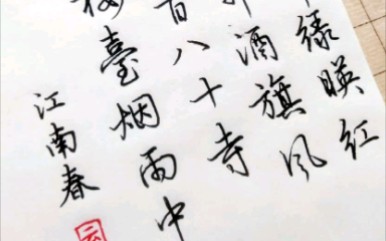 绿暎红
酒旗风
百八十寺
楼臺烟雨中
江南春